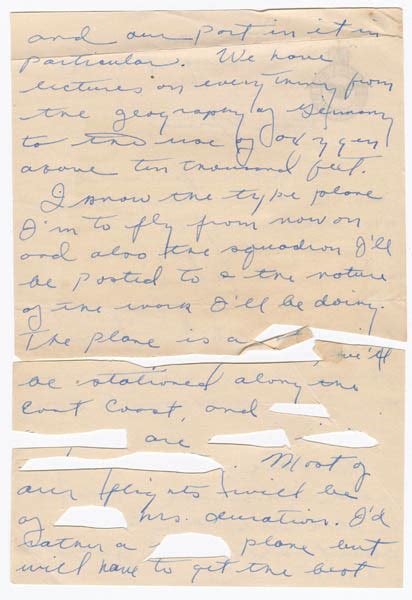 and our part in it in
particular. We have
lectures on everything from
the geography of Germany
to the use of oxygen
above ten thousand feet.
I know the type plane
I'm to fly from now on
and also the squadron I'll
be posted to & the nature
of the work I'll be doing.
The plane is a we'll
be stationed along the
East Coast, and
are
. Most of
our flights will be
of hrs. duration. I'd
rather a plane but
will have to get the best